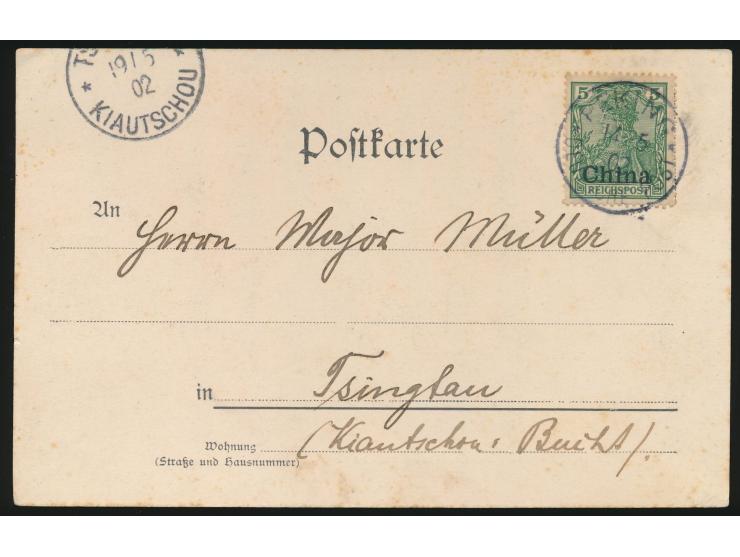 19/5
02
* KIAUTSCHOU *
5 5
02
China
REICHSPOST
Postkarte
An
Herrn Major Müller
in Tsingtau
Wohnung (Kiautschou: Bucht).
(Straße und Hausnummer)